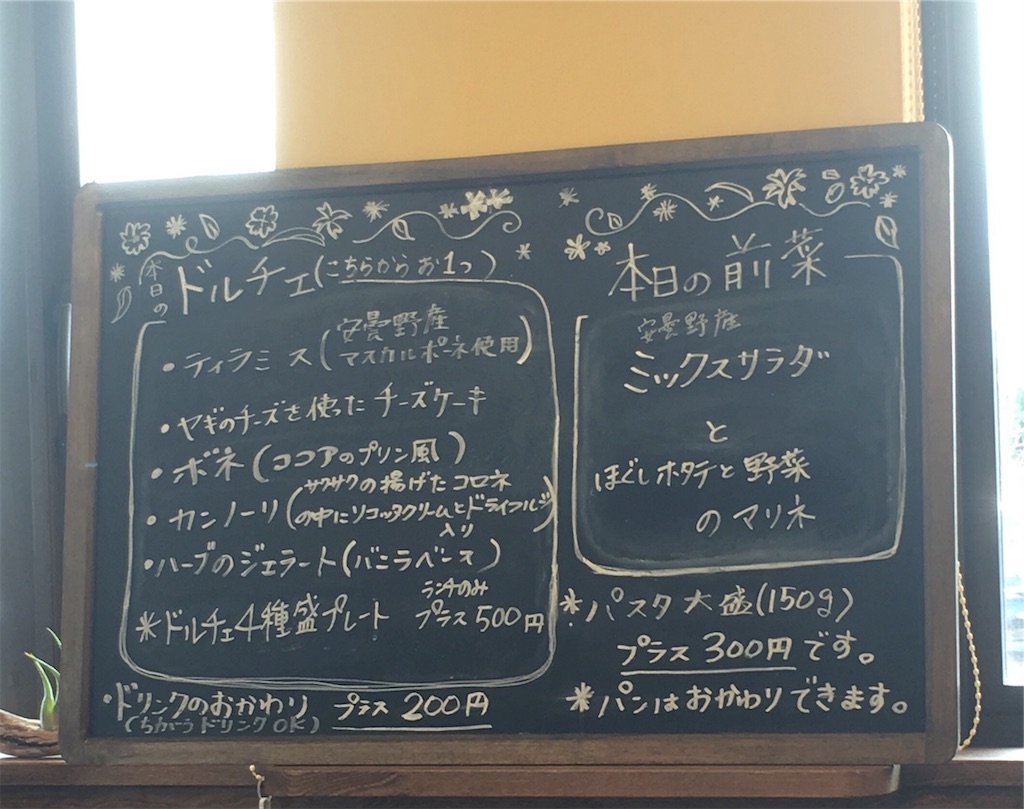 本日の
ドルチェ(こちらからお1つ)
・ティラミス(安曇野産
マスカルポーネ使用)
・ヤギのチーズを使ったチーズケーキ
・ボネ(ココアのプリン風)
・カンノーリ(サクサクの揚げたコロネ
の中にリコッタクリームとドライフルーツ
入り
・ハーブのジェラート(バニラベース)
ランチのみ
*ドルチェ4種盛プレート プラス500円
・ドリンクのおかわり プラス 200円
(ちがうドリンクOK)
本日の前菜
安曇野産
ミックスサラダ
と
ほぐしホタテと野菜
のマリネ
*パスタ大盛(150g)
プラス 300円です。
*パンはおかわりできます。